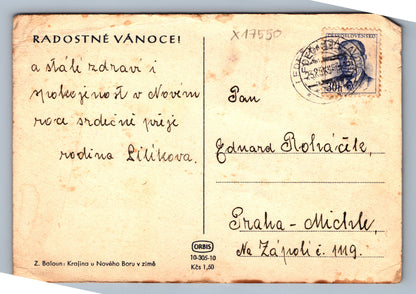 RADOSTNÉ VÁNOCE!
X17550
ČESKOSLOVENSKO
a stálé zdraví i
spokojenost v Novém
roce srdečně přeje
rodina Lilíkova.
Pan
Eduard Roháčík,
Praha-Michle,
Na Zápolí č. 1119.
Z. Baloun: Krajina u Nového Boru v zimě
ORBIS
10-305-10
Kčs 1,50